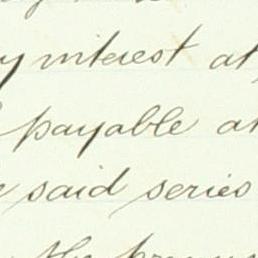 y interest at
payable at
said series
the